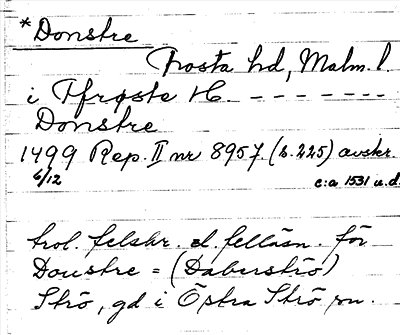 *Donstre
Frosta hd, Malm. l.
i Ffrøste H. - - - - - - - -
Donstre
1499 Rep. II nr 8957. (s. 225) avskr.
6/12 c:a 1531 u.d.
trol. felskr. el. felläsn. för
Doustre = (Daberströ)
Strö, gd i Östra Strö sn.